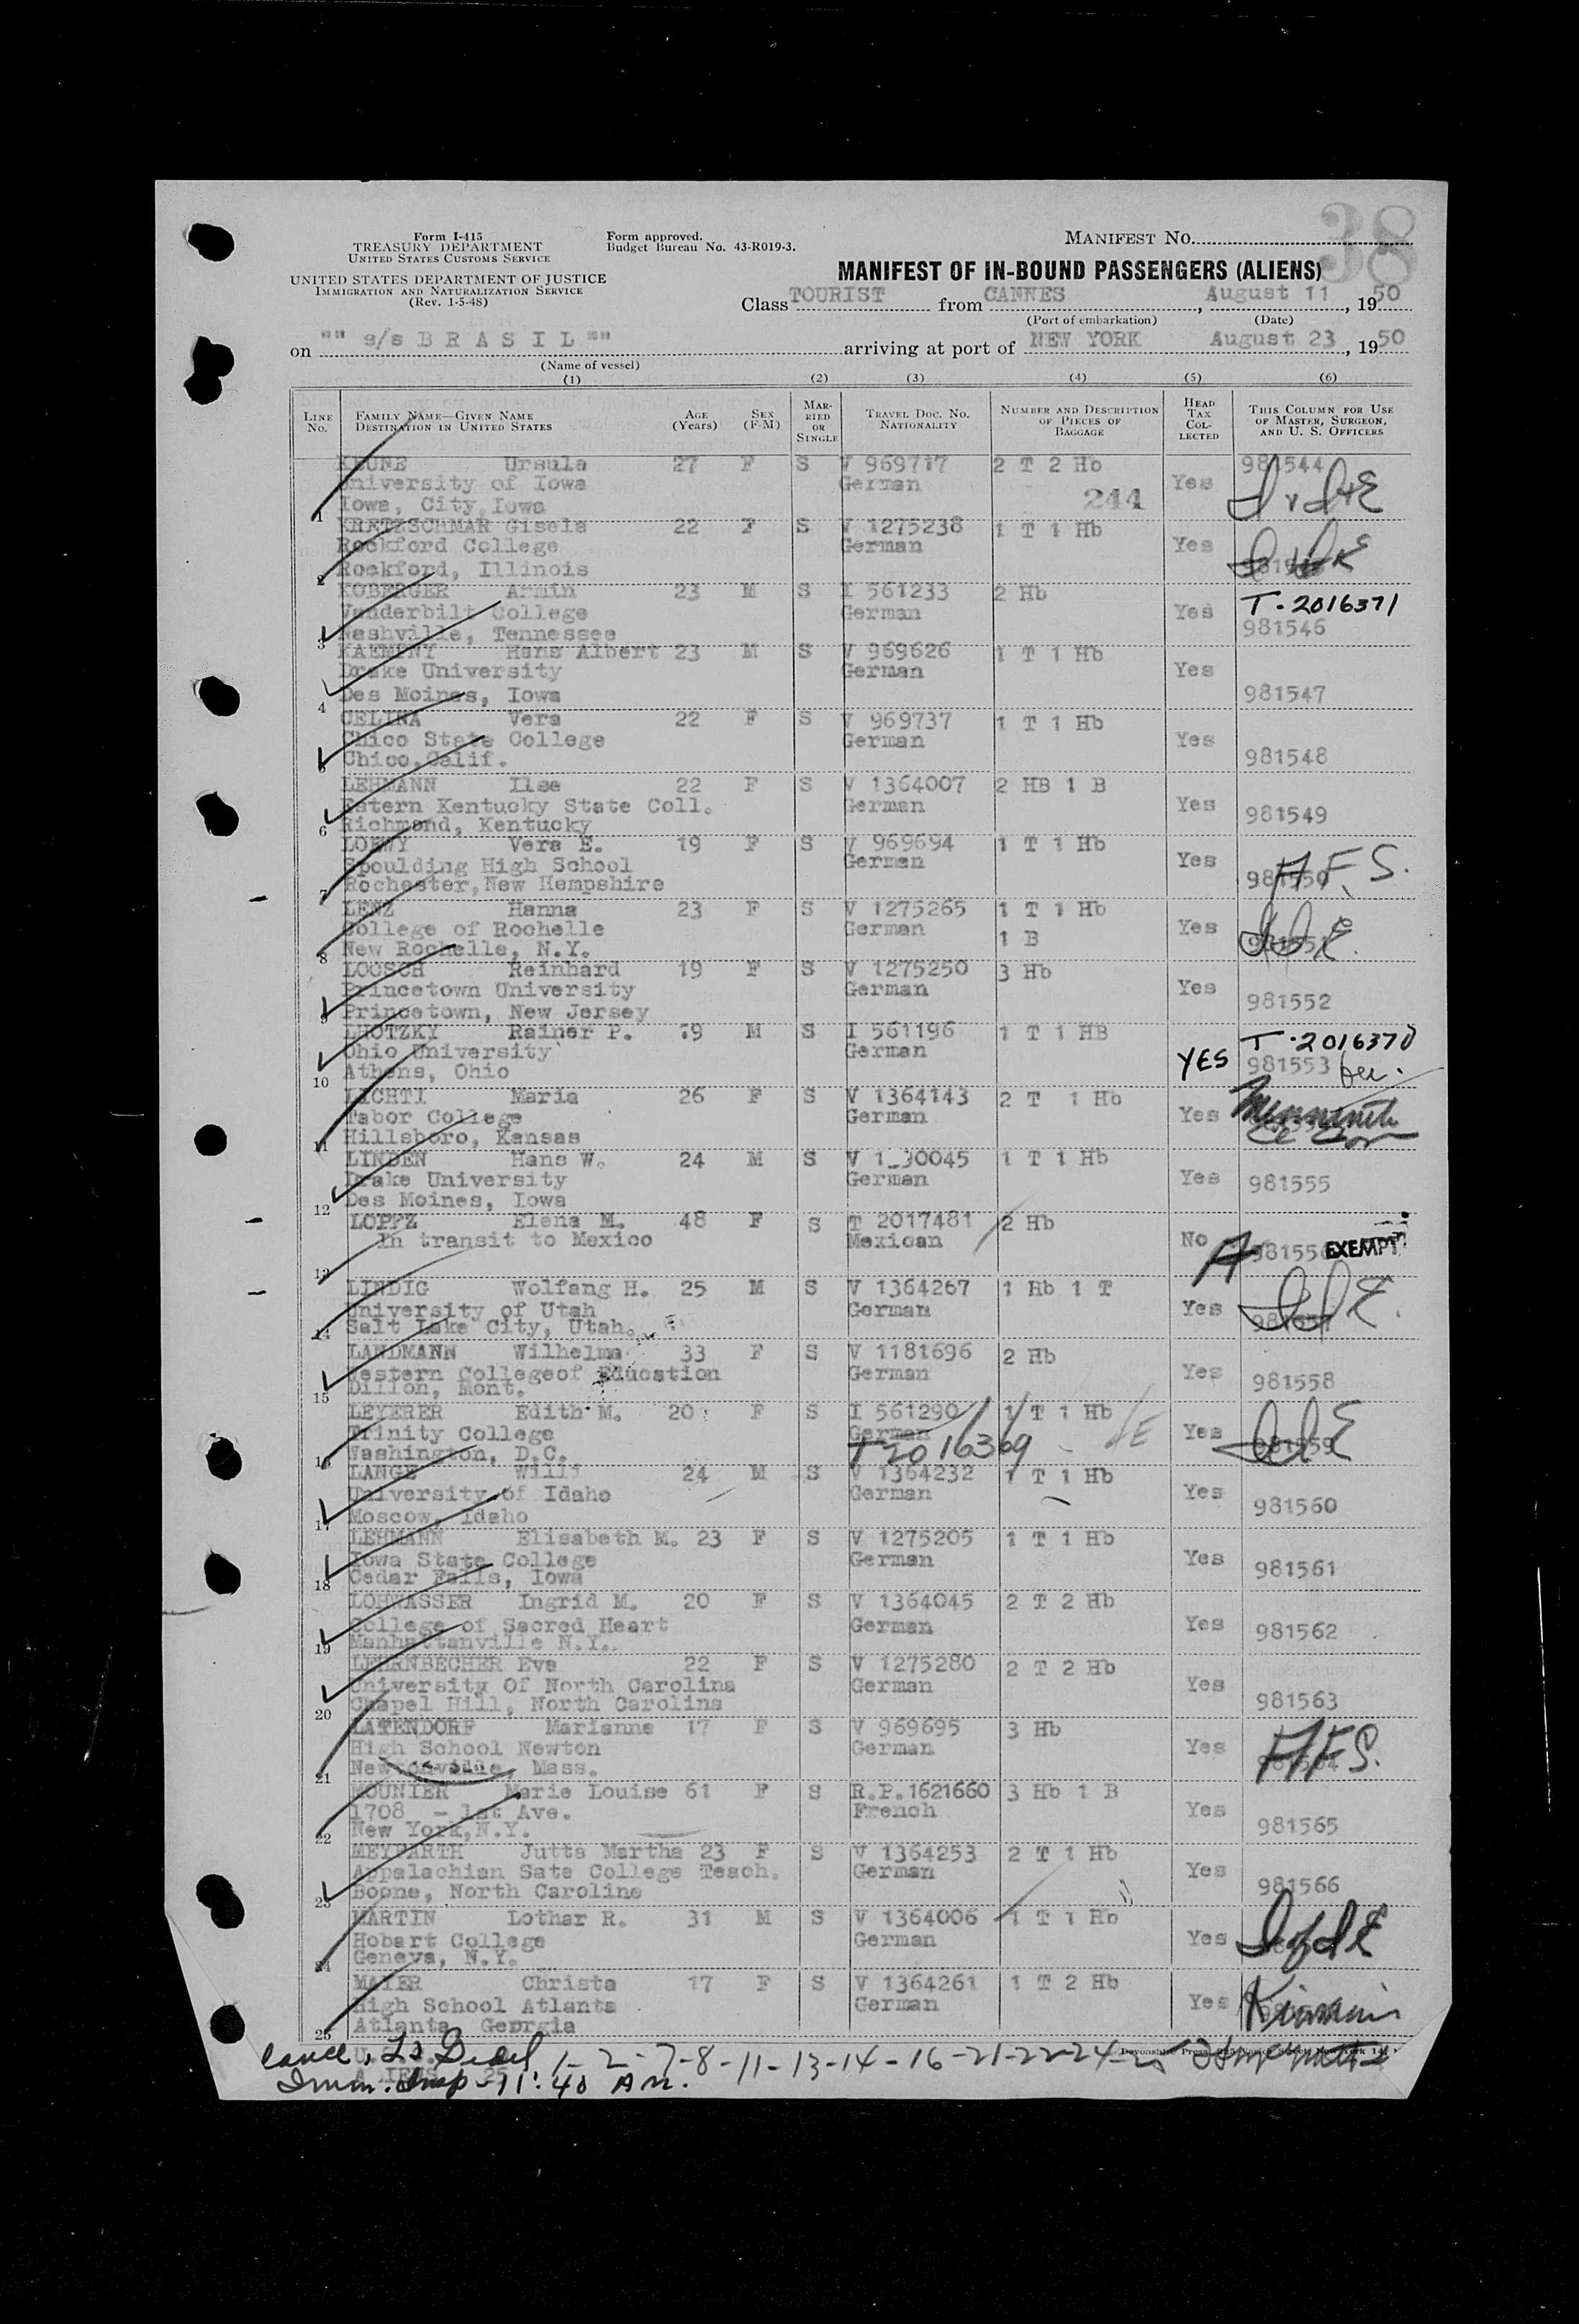 38
Form I-415
TREASURY DEPARTMENT
UNITED STATES CUSTOMS SERVICE
Form approved.
Budget Bureau No. 43-R019-3.
MANIFEST NO.
UNITED STATES DEPARTMENT OF JUSTICE
IMMIGRATION AND NATURALIZATION SERVICE
(Rev. 1-5-48)
MANIFEST OF IN-BOUND PASSENGERS (ALIENS)
Class TOURIST from CANNES, August 11, 1950
(Port of embarkation) (Date)
on "" s/s B R A S I L "" arriving at port of NEW YORK August 23, 1950
(Name of vessel)
(1) (2) (3) (4) (5) (6)
LINE No. FAMILY NAME—GIVEN NAME DESTINATION IN UNITED STATES AGE (Years) SEX (F-M) MARRIED OR SINGLE TRAVEL DOC. NO. NATIONALITY NUMBER AND DESCRIPTION OF PIECES OF BAGGAGE HEAD TAX COLLECTED THIS COLUMN FOR USE OF MASTER, SURGEON, AND U. S. OFFICERS
KEUNE Ursula 27 F S V 969717 2 T 2 Hb 981544
University of Iowa German Yes
1 Iowa, City, Iowa 244
KRETZSCHMAR Gisela 22 F S V 1275238 1 T 1 Hb
Rockford College German Yes
2 Rockford, Illinois
KOBERGER Armin 23 M S I 561233 2 Hb T-2016371
Vanderbilt College German Yes
3 Nashville, Tennessee 981546
KAEMPNY Hans Albert 23 M S V 969626 1 T 1 Hb
Drake University German Yes
4 Des Moines, Iowa 981547
CELINA Vera 22 F S V 969737 1 T 1 Hb
Chico State College German Yes
5 Chico, Calif. 981548
LEHMANN Ilse 22 F S V 1364007 2 HB 1 B
Estern Kentucky State Coll. German Yes
6 Richmond, Kentucky 981549
LOEWY Vera E. 19 F S V 969694 1 T 1 Hb
Spoulding High School German Yes A F. S.
7 Rochester, New Hempshire 981550
LENZ Hanna 23 F S V 1275265 1 T 1 Hb
College of Rochelle German Yes
8 New Rochelle, N.Y. 1 B
LOOSCH Reinhard 19 F S V 1275250 3 Hb
Princetown University German Yes
9 Princetown, New Jersey 981552
LHOTZKY Rainer P. 19 M S I 561196 1 T 1 HB T-2016370
Ohio University German YES 981553
10 Athens, Ohio
LICHTI Maria 26 F S V 1364143 2 T 1 Hb
Tabor College German Yes
11 Hillsboro, Kansas
LINDEN Hans W. 24 M S 1 T 1 Hb
Drake University German Yes 981555
12 Des Moines, Iowa
LOPPZ Elena M. 48 F S T 2017481 2 Hb
In transit to Mexico Mexican No EXEMPT
13
LINDIG Wolfang H. 25 M S V 1364267 1 Hb 1 T
University of Utah German Yes
14 Salt Lake City, Utah.
LANDMANN Wilhelma 33 F S V 1181696 2 Hb
Western Collegeof Education German Yes 981558
15 Dillon, Mont.
LEYERER Edith M. 20 F S I 561290 1 T 1 Hb
Trinity College German Yes
16 Washington, D.C. T 2016369
LANGE Willi 24 M S V 1364232 1 T 1 Hb
University of Idaho German Yes 981560
17 Moscow, Idaho
LEHMANN Elisabeth M. 23 F S V 1275205 1 T 1 Hb
Iowa State College German Yes 981561
18 Cedar Falls, Iowa
LOHWASSER Ingrid M. 20 F S V 1364045 2 T 2 Hb
College of Sacred Heart German Yes 981562
19 Manhattanville N.Y..
LEHRNBECHER Eva 22 F S V 1275280 2 T 2 Hb
University Of North Carolina German Yes
20 Chapel Hill, North Carolina 981563
LATENDORF Marianne 17 F S V 969695 3 Hb
High School Newton German Yes AFS.
21 Newtonville, Mass.
MOUNIER Marie Louise 61 F S R.P.1621660 3 Hb 1 B
1708 - 1st Ave. French Yes
22 New York, N.Y. 981565
MEYFARTH Jutta Martha 23 F S V 1364253 2 T 1 Hb
Appalachian Sate College Teach. German Yes
23 Boone, North Carolina 981566
MARTIN Lothar R. 31 M S V 1364006 1 T 1 Hb
Hobart College German Yes
24 Geneva, N.Y.
MAYER Christa 17 F S V 1364261 1 T 2 Hb
High School Atlanta German Yes
25 Atlanta, Georgia
1-2-7-8-11-13-14-16-21-22-24-25
Imm. Insp-11:40 AM.